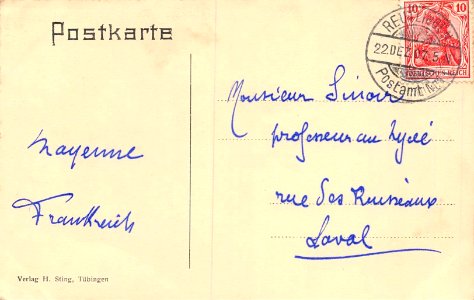 Postkarte
REUTLINGEN
22.DEZ.07.5-6N
Postamt No 1
10 10
DEUTSCHES REICH
Monsieur Sinoir
professeur au Lycée
rue des Ruisseaux
Laval
Mayenne
Frankreich
Verlag H. Sting, Tübingen